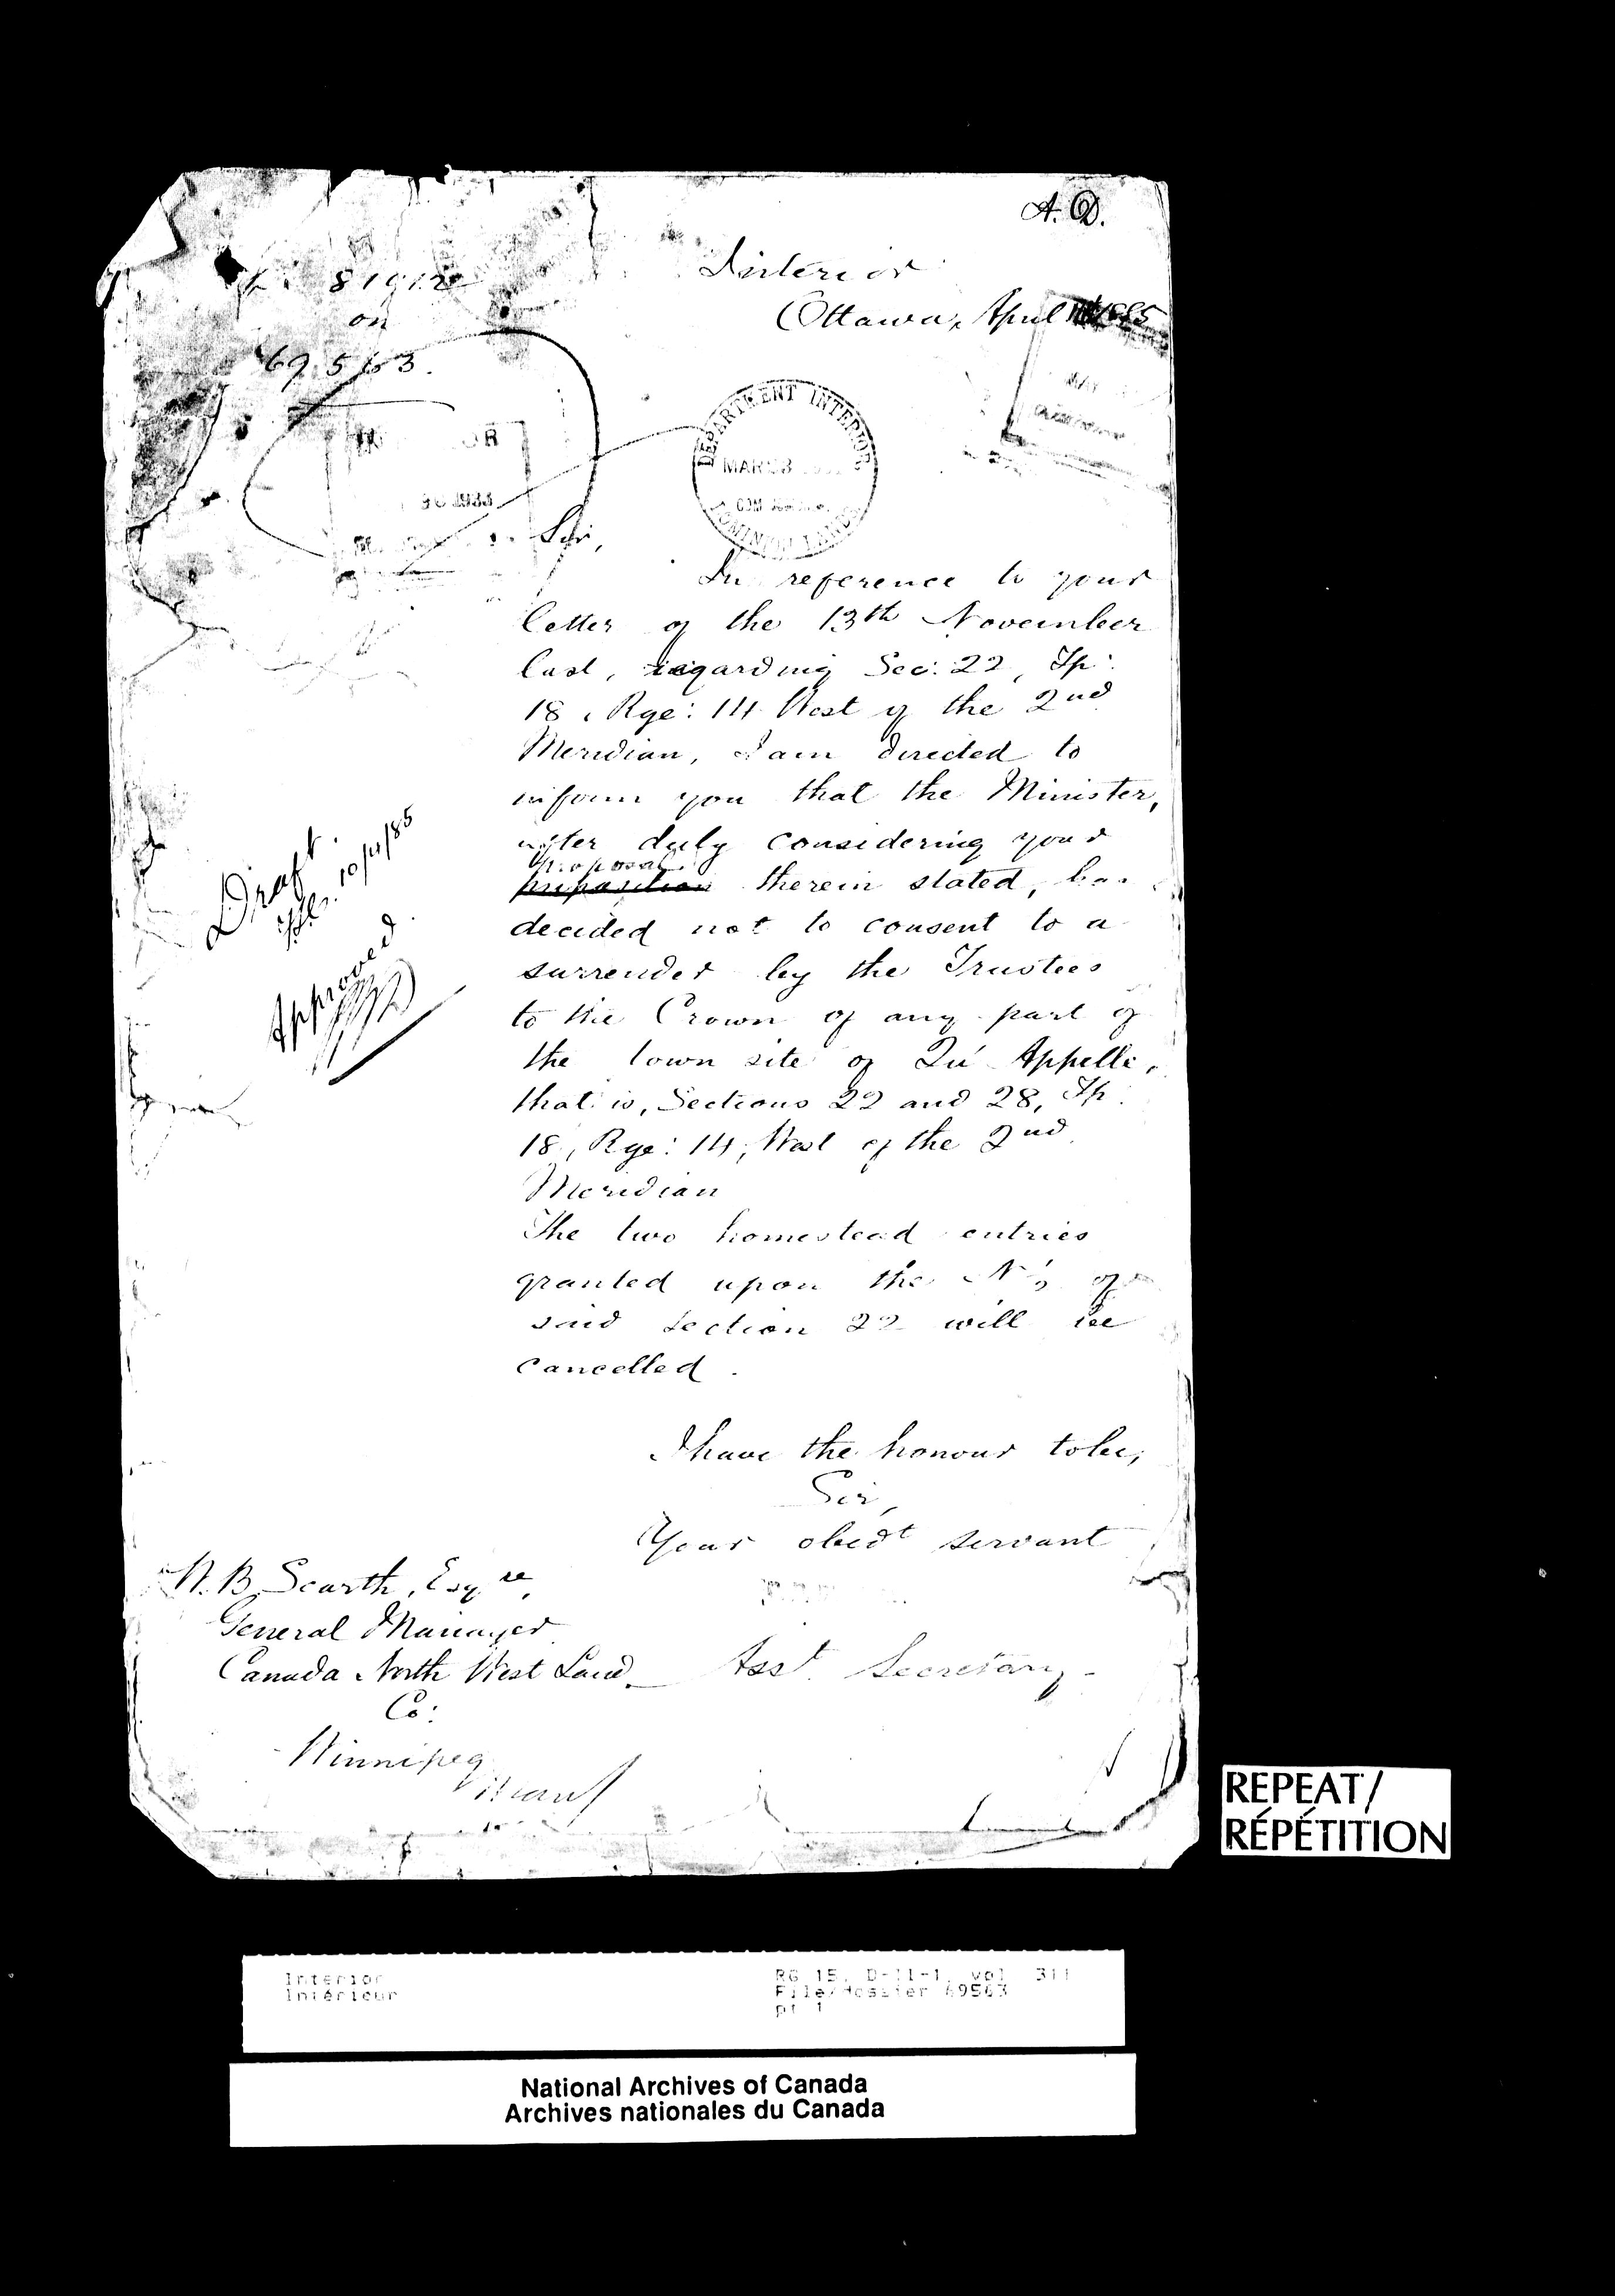 A. D.
Interior
Ottawa, April 1885
81912
on
69563.
DEPARTMENT INTERIOR
MAR 23
DOMINION LANDS
Sir,
In reference to your
letter of the 13th November
last, regarding Sec: 22, Tp:
18, Rge: 14 West of the 2nd
Meridian, I am directed to
inform you that the Minister,
after duly considering your
proposal
proposition therein stated, has
decided not to consent to a
surrender by the Trustees
to the Crown of any part of
the town site of Qu'Appelle,
that is, Sections 22 and 28, Tp:
18, Rge: 14, West of the 2nd
Meridian
The two homestead entries
granted upon the N½ of
said Section 22 will be
cancelled.
Draft.
10/4/85
Approved.
I have the honour to be,
Sir,
Your obedt servant
W. B. Scarth, Esqre,
General Manager
Canada North West Land
Co:
Winnipeg
Man
Asst. Secretary
REPEAT/
RÉPÉTITION
Interior
Intérieur
RG 15, D-II-1, vol 311
File/dossier 69563
pt 1
National Archives of Canada
Archives nationales du Canada